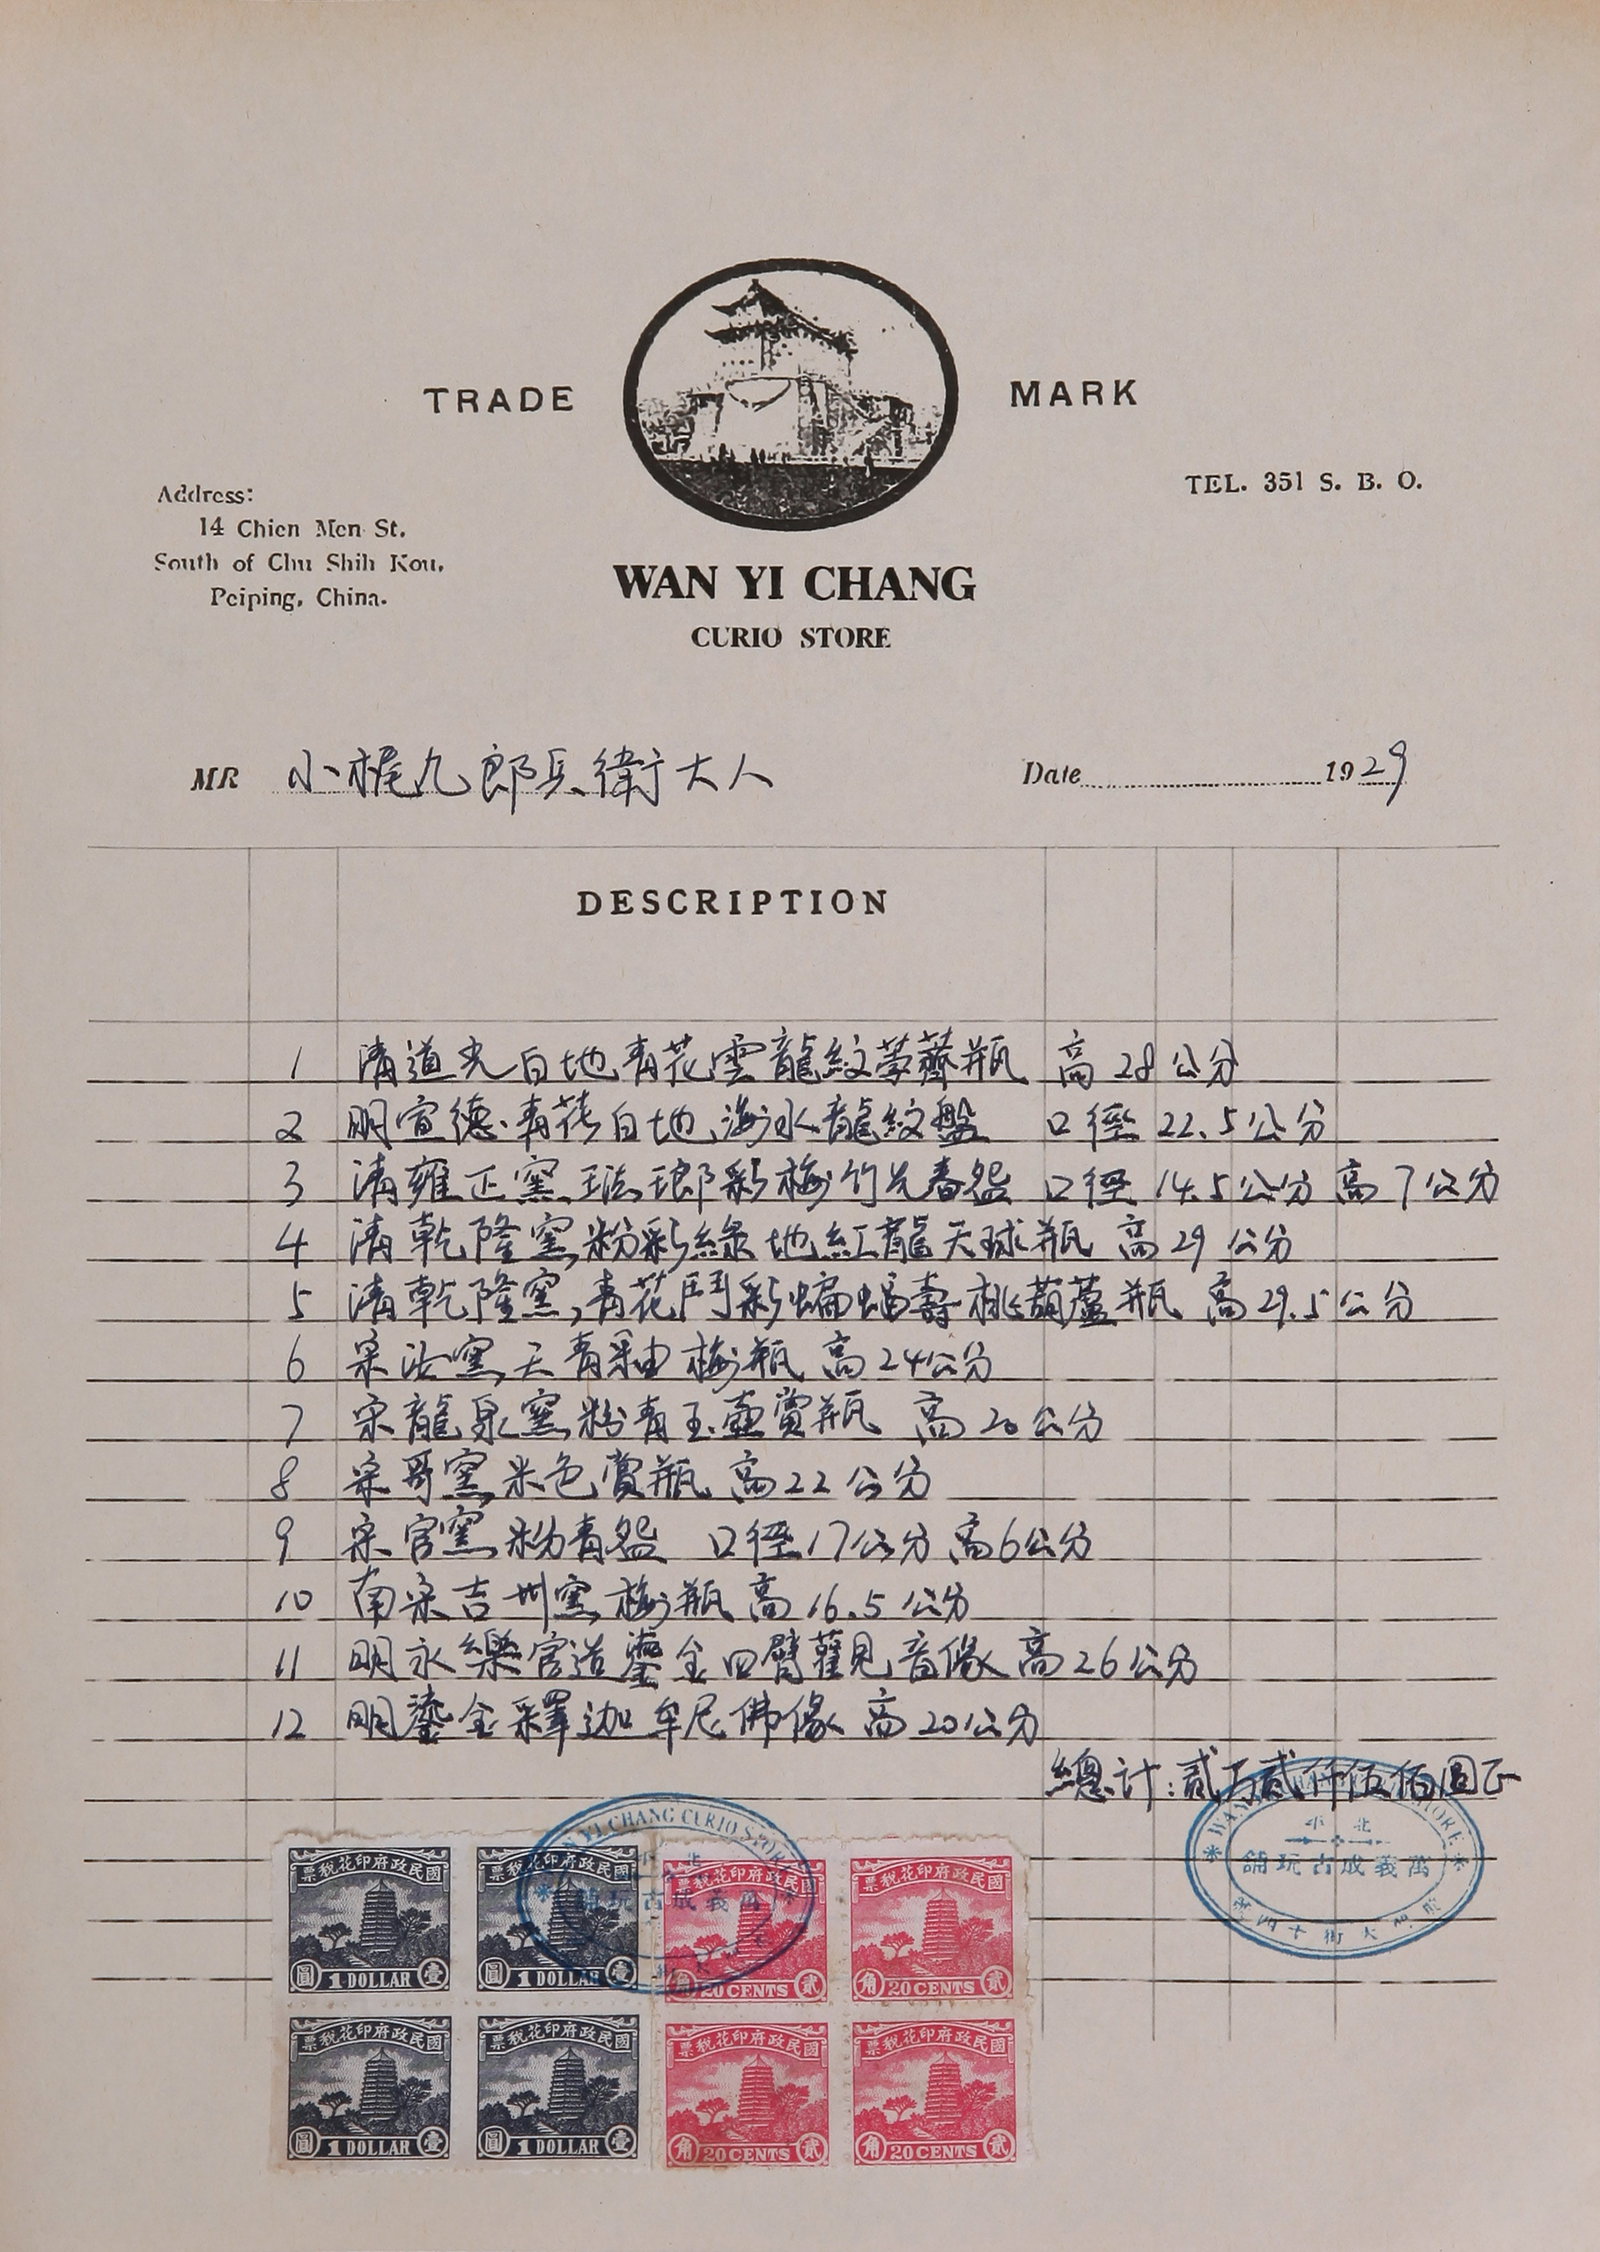 TRADE MARK
Address:
14 Chien Men St.
South of Chu Shih Kou,
Peiping, China.
TEL. 351 S. B. O.
WAN YI CHANG
CURIO STORE
MR 小梶九郎兵衛大人
Date 1929
DESCRIPTION
1 清道光白地青花雲龍紋荸薺瓶 高28公分
2 明宣德青花白地海水龍紋盤 口徑22.5公分
3 清雍正窯琺瑯彩梅竹先春盌 口徑14.5公分高7公分
4 清乾隆窯粉彩綠地紅龍天球瓶 高29公分
5 清乾隆窯,青花鬥彩蝙蝠壽桃葫蘆瓶 高29.5公分
6 宋汝窯天青釉梅瓶 高24公分
7 宋龍泉窯粉青玉壺賞瓶 高20公分
8 宋哥窯米色賞瓶 高22公分
9 宋官窯粉青盌 口徑17公分高6公分
10 南宋吉州窯梅瓶 高16.5公分
11 明永樂官造鎏金四臂觀音像 高26公分
12 明鎏金釋迦牟尼佛像 高20公分
總计:貳万貳仟伍佰圓正
WAN YI CHANG CURIO STORE
北平
萬義成古玩舖
前門大街十四號
國民政府印花稅票
圓 1 DOLLAR 壹
國民政府印花稅票
圓 1 DOLLAR 壹
國民政府印花稅票
角 20 CENTS 貳
國民政府印花稅票
角 20 CENTS 貳
國民政府印花稅票
圓 1 DOLLAR 壹
國民政府印花稅票
圓 1 DOLLAR 壹
國民政府印花稅票
角 20 CENTS 貳
國民政府印花稅票
角 20 CENTS 貳